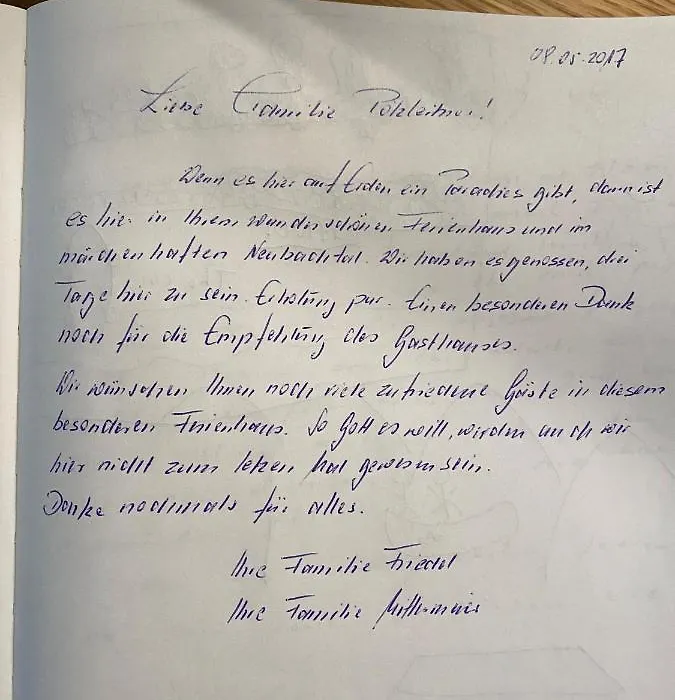 08.05.2017
Liebe Familie Pölzleitner!
Wenn es hier auf Erden ein Paradies gibt, dann ist
es hier in Ihrem wunderschönen Ferienhaus und im
märchenhaften Neubachtal. Wir haben es genossen, drei
Tage hier zu sein. Erholung pur. Einen besonderen Dank
noch für die Empfehlung des Gasthauses.
Wir wünschen Ihnen noch viele zufriedene Gäste in diesem
besonderen Ferienhaus. So Gott es will, werden auch wir
hier nicht zum letzen Mal gewesen sein.
Danke nochmals für alles.
Ihre Familie Friedel
Ihre Familie